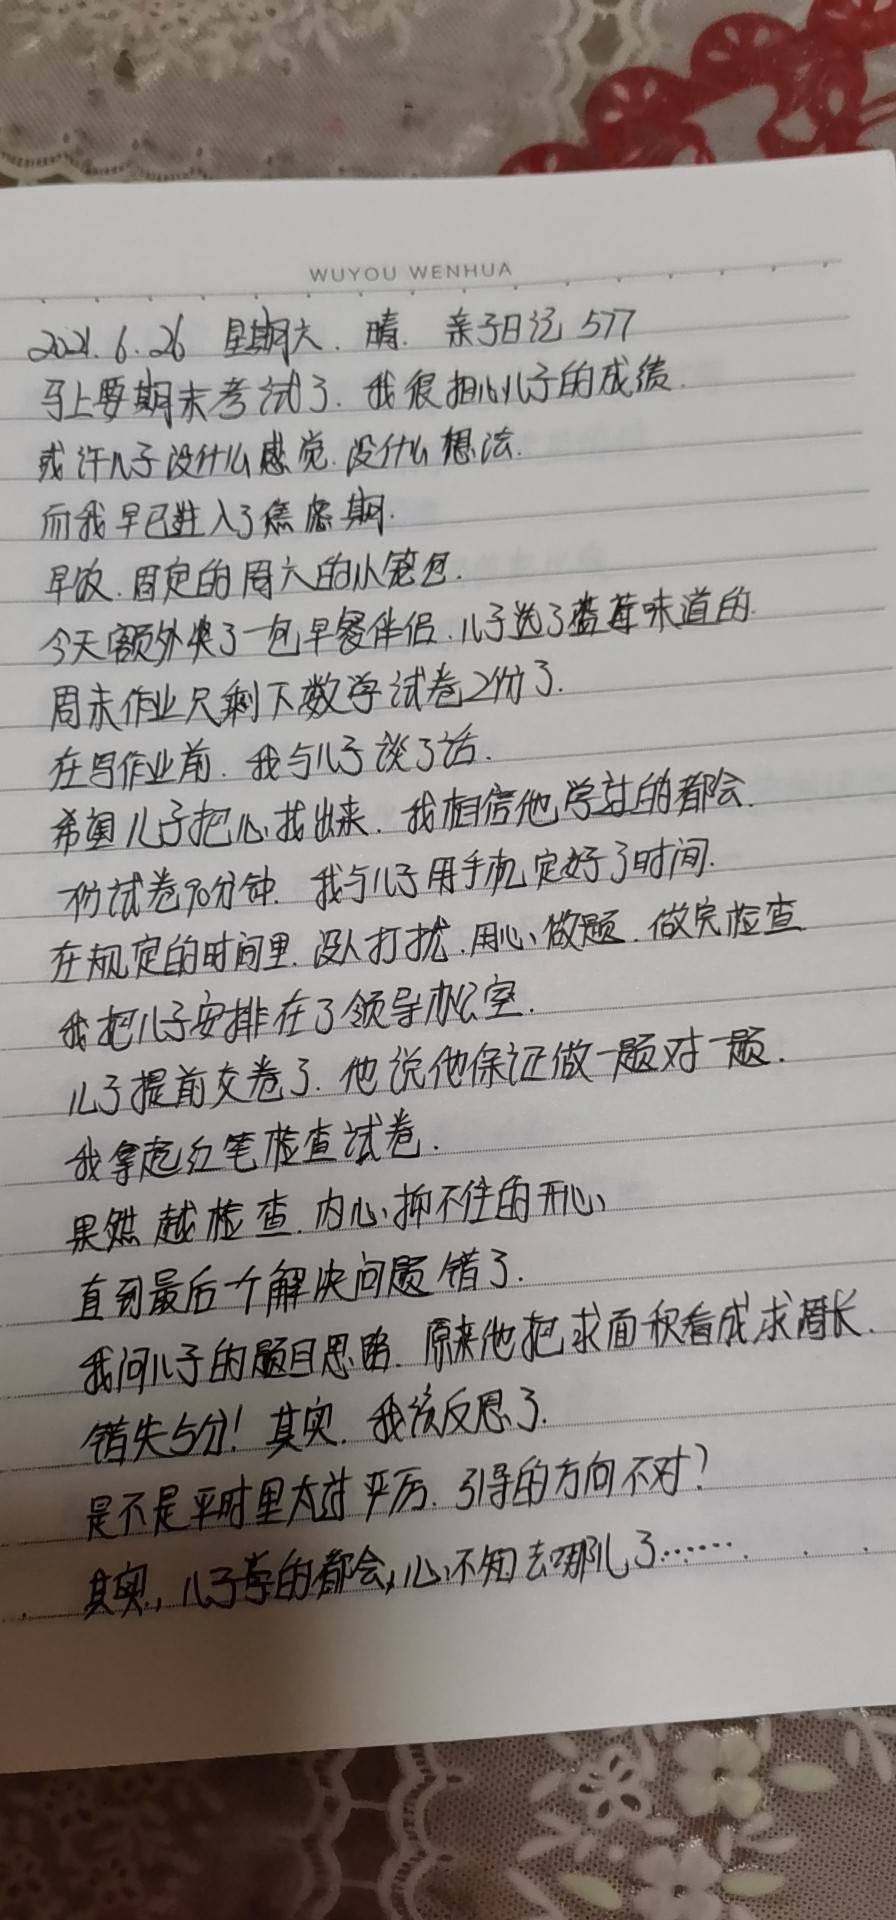 WUYOU WENHUA
2021.6.26 星期六.晴.亲子日记577
马上要期末考试了.我很担心儿子的成绩.
或许儿子没什么感觉.没什么想法.
而我早已进入了焦虑期.
早饭.固定的周六的小笼包.
今天额外买了一包早餐伴侣.儿子选了蓝莓味道的.
周末作业只剩下数学试卷2份了.
在写作业前.我与儿子谈了话.
希望儿子把心找出来.我相信他学过的都会.
一份试卷90分钟.我与儿子用手机定好了时间.
在规定的时间里.没人打扰.用心做题.做完检查
我把儿子安排在了领导办公室.
儿子提前交卷了.他说他保证做一题对一题.
我拿起红笔检查试卷.
果然越检查.内心抑不住的开心
直到最后一个解决问题错了.
我问儿子的题目思路.原来他把求面积看成求周长.
错失5分!其实.我该反思了.
是不是平时里太过严厉.引导的方向不对?
其实,儿子学的都会,心不知去哪儿了……